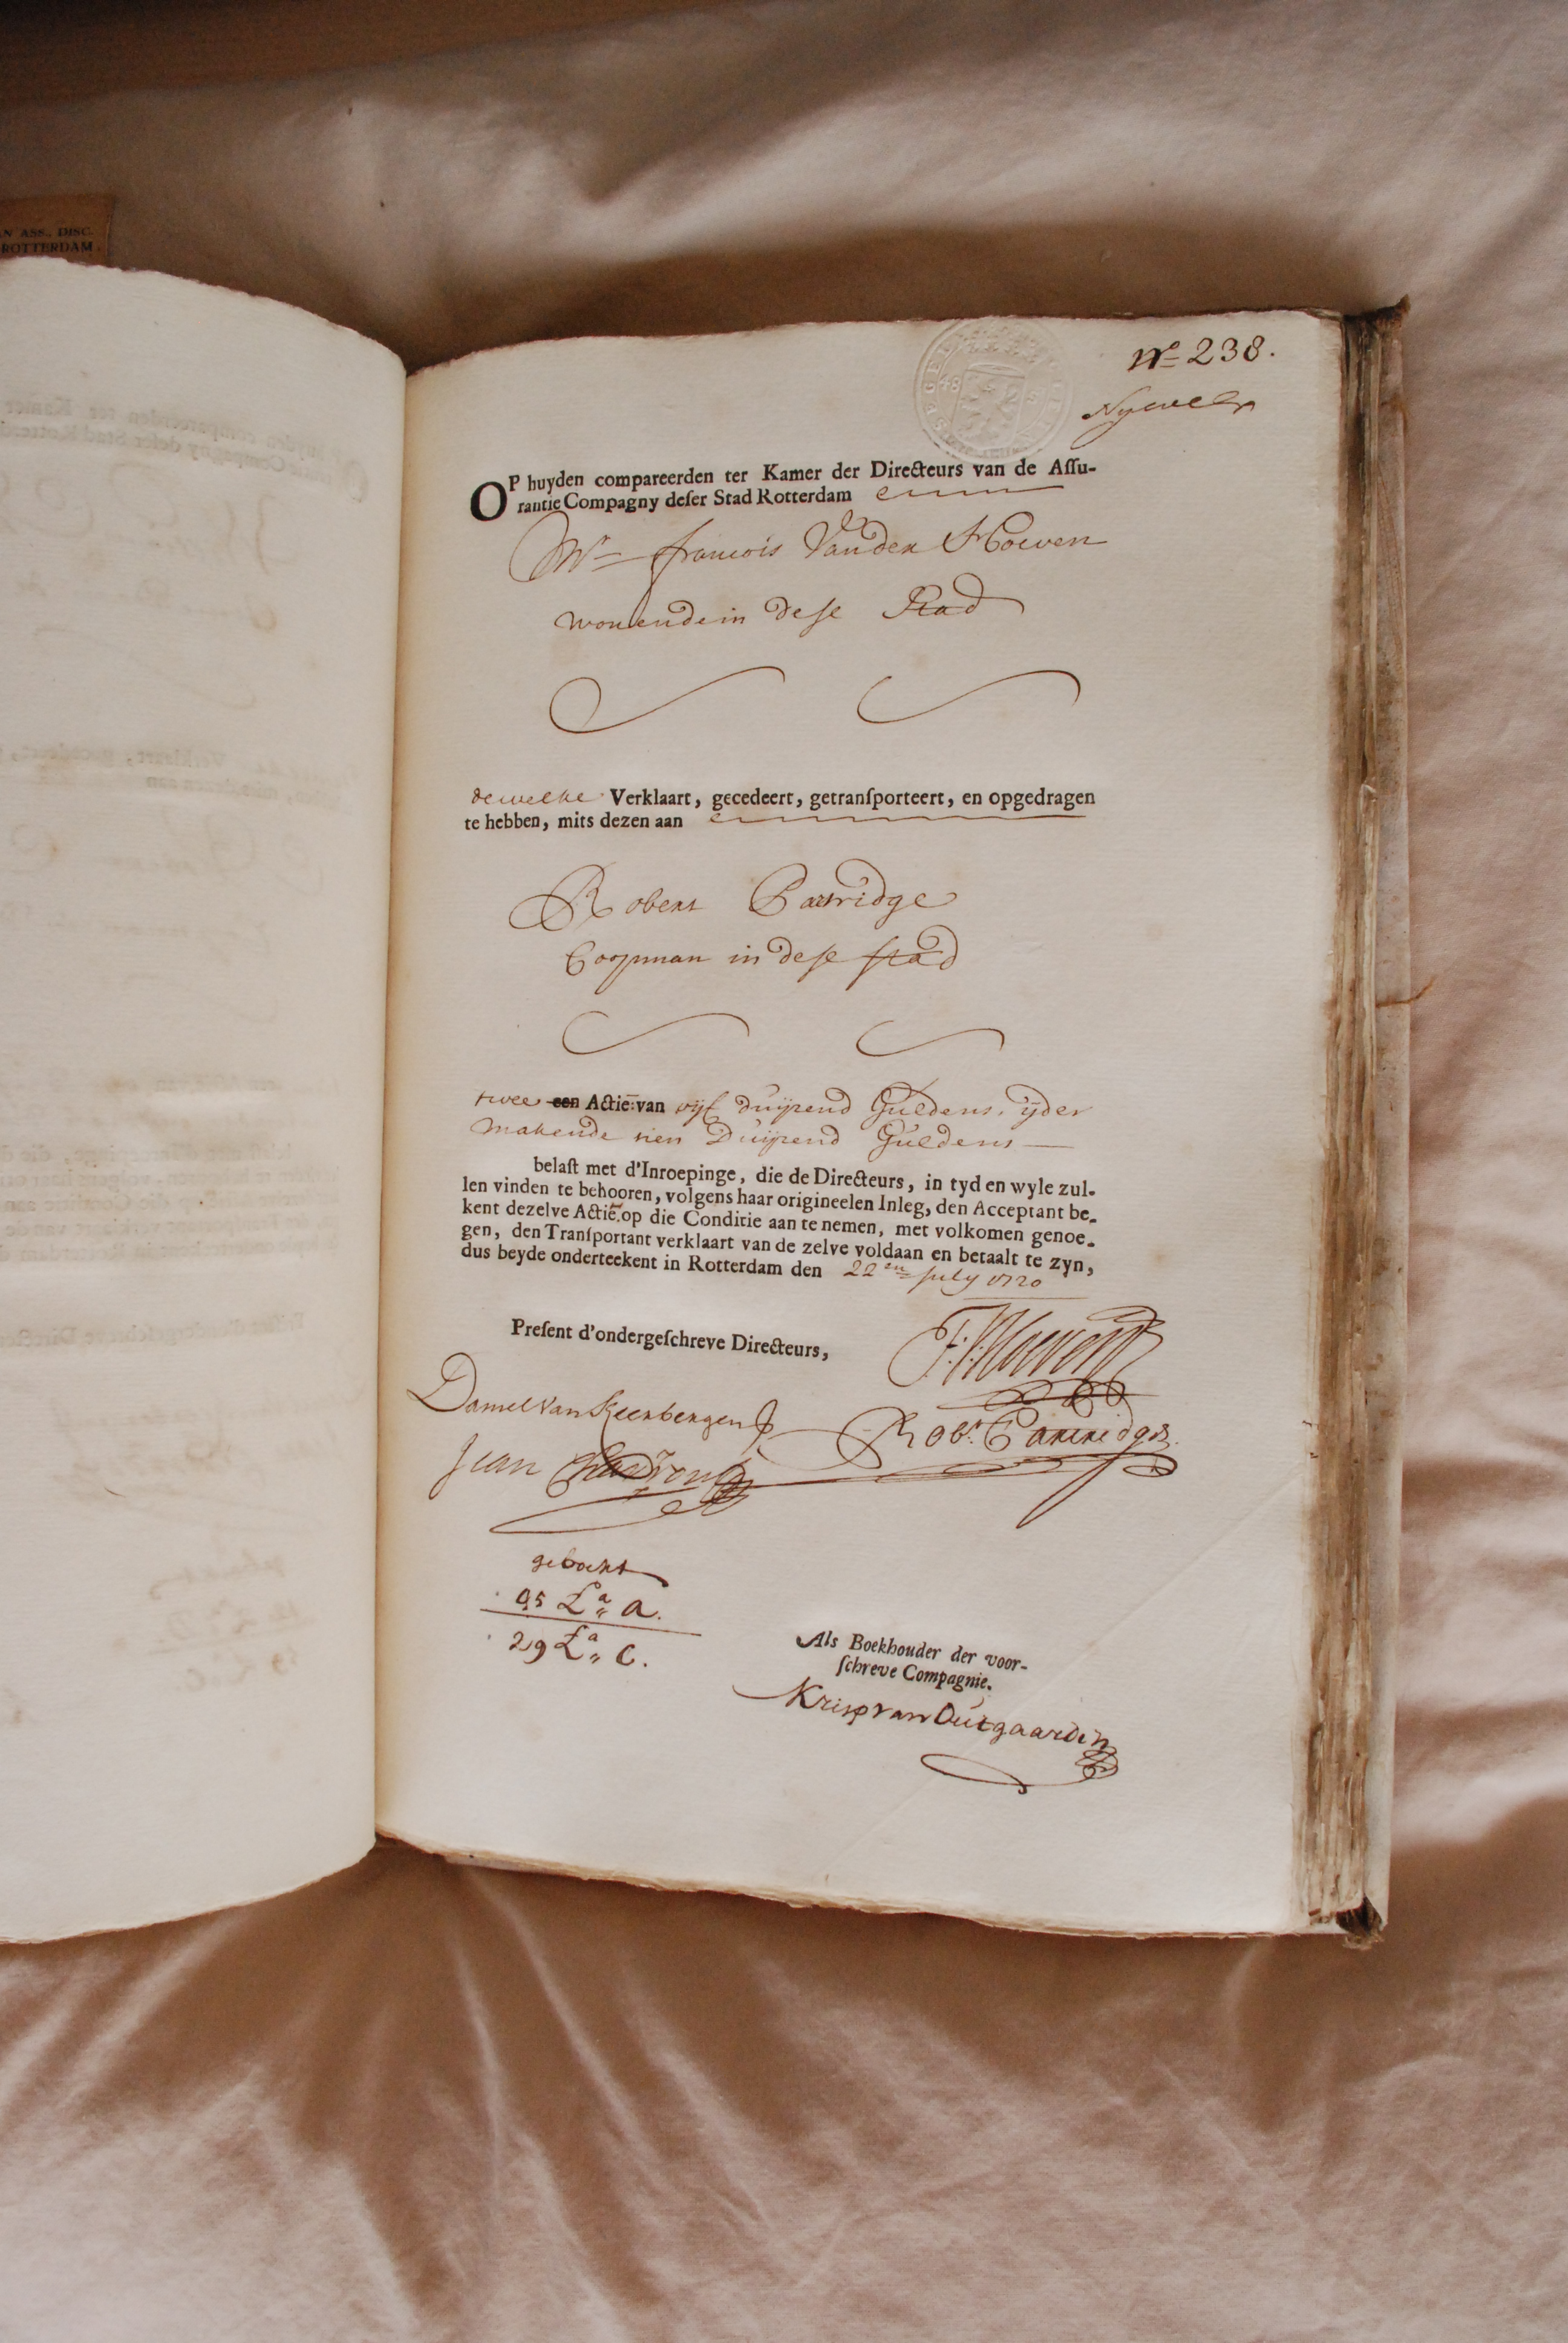 N ASS., DISC.
ROTTERDAM.
No 238.
OP huyden compareerden ter Kamer der Directeurs van de Aſſu-
rantie Compagny deſer Stad Rotterdam
Mr francois Vanden Hoeven
wonende in deſe Stad
dewelke Verklaart, gecedeert, getranſporteert, en opgedragen
te hebben, mits dezen aan
Robert Partridge
Coopman in deſe ſtad
twee een Actie: van vijf duijzend Guldens ijder
makende tien Duijzend Guldens
belaſt met d'Inroepinge, die de Directeurs, in tyd en wyle zul-
len vinden te behooren, volgens haar origineelen Inleg, den Acceptant be-
kent dezelve Actie op die Conditie aan te nemen, met volkomen genoe-
gen, den Tranſportant verklaart van de zelve voldaan en betaalt te zyn,
dus beyde onderteekent in Rotterdam den 22en July 1720
Preſent d'ondergeſchreve Directeurs,
F:V:Hoeven
Daniel van Keerbergen
Robt. Partridge
Jean
geboekt
95 La A.
29 La C.
Als Boekhouder der voor-
ſchreve Compagnie.
Krisp van Outgaarden